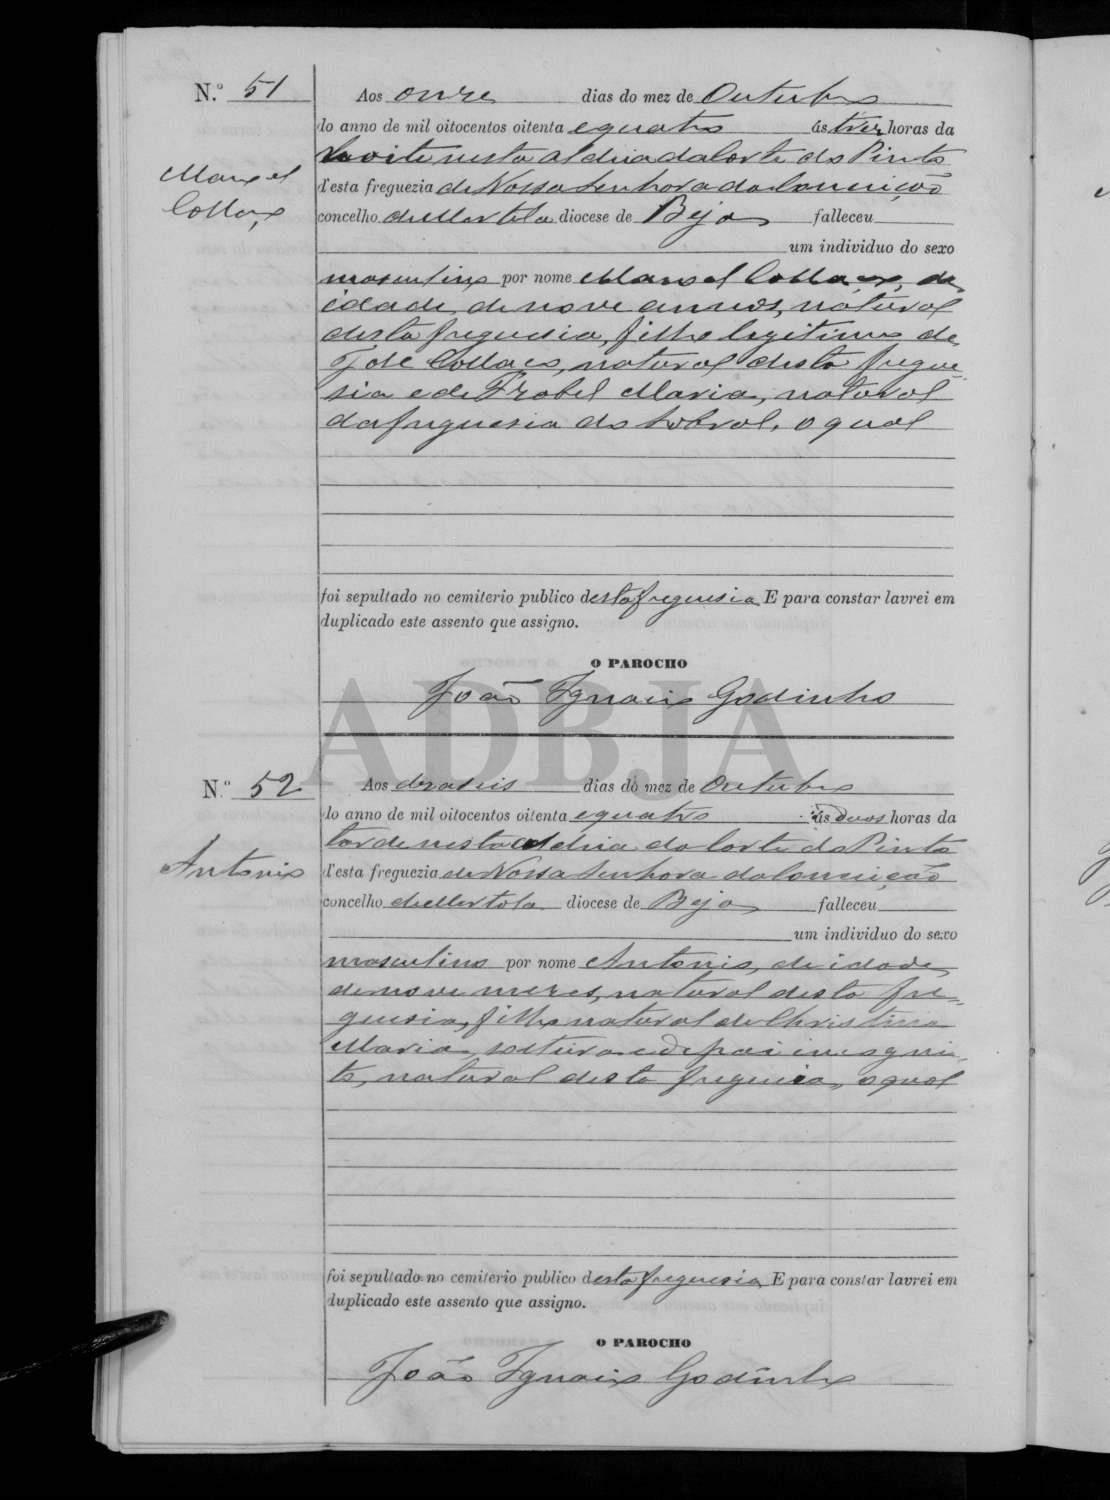 N.º 51
Aos onze dias do mez de Outubro
do anno de mil oitocentos oitenta e quatro ás tres horas da
Noite nesta Aldeia da Corte do Pinto
Manoel
d'esta freguezia de Nossa Senhora da Conceição
Collaço
concelho de Mertola diocese de Beja falleceu
um individuo do sexo
masculino por nome Manoel Collaço, de
idade de nove annos, natural
desta freguesia, filho legitimo de
José Collaço, natural desta fregue=
sia e de Izabel Maria, natural
da freguesia do Sobral, o qual
foi sepultado no cemiterio publico desta freguesia E para constar lavrei em
duplicado este assento que assigno.
O PAROCHO
João Ignacio Godinho
ADBJA
N.º 52
Aos dezaseis dias do mez de Outubro
do anno de mil oitocentos oitenta e quatro ás duas horas da
tarde nesta Aldeia da Corte do Pinto
Antonio
d'esta freguezia de Nossa Senhora da Conceição
concelho de Mertola diocese de Beja falleceu
um individuo do sexo
masculino por nome Antonio, de idade
de nove mezes, natural desta fre=
guesia, filho natural de Christina
Maria, solteira e de pai incogni-
to, natural desta freguesia, o qual
foi sepultado no cemiterio publico desta freguesia E para constar lavrei em
duplicado este assento que assigno.
O PAROCHO
João Ignacio Godinho